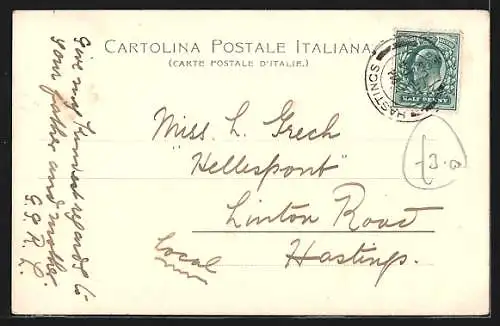 CARTOLINA POSTALE ITALIANA
(CARTE POSTALE D'ITALIE.)
HASTINGS
HALF PENNY
Miss. L. Grech
"Hellespont"
Linton Road
Hastings.
Local
Give my kindest regards to
your father and mother.
G.G.R.L.